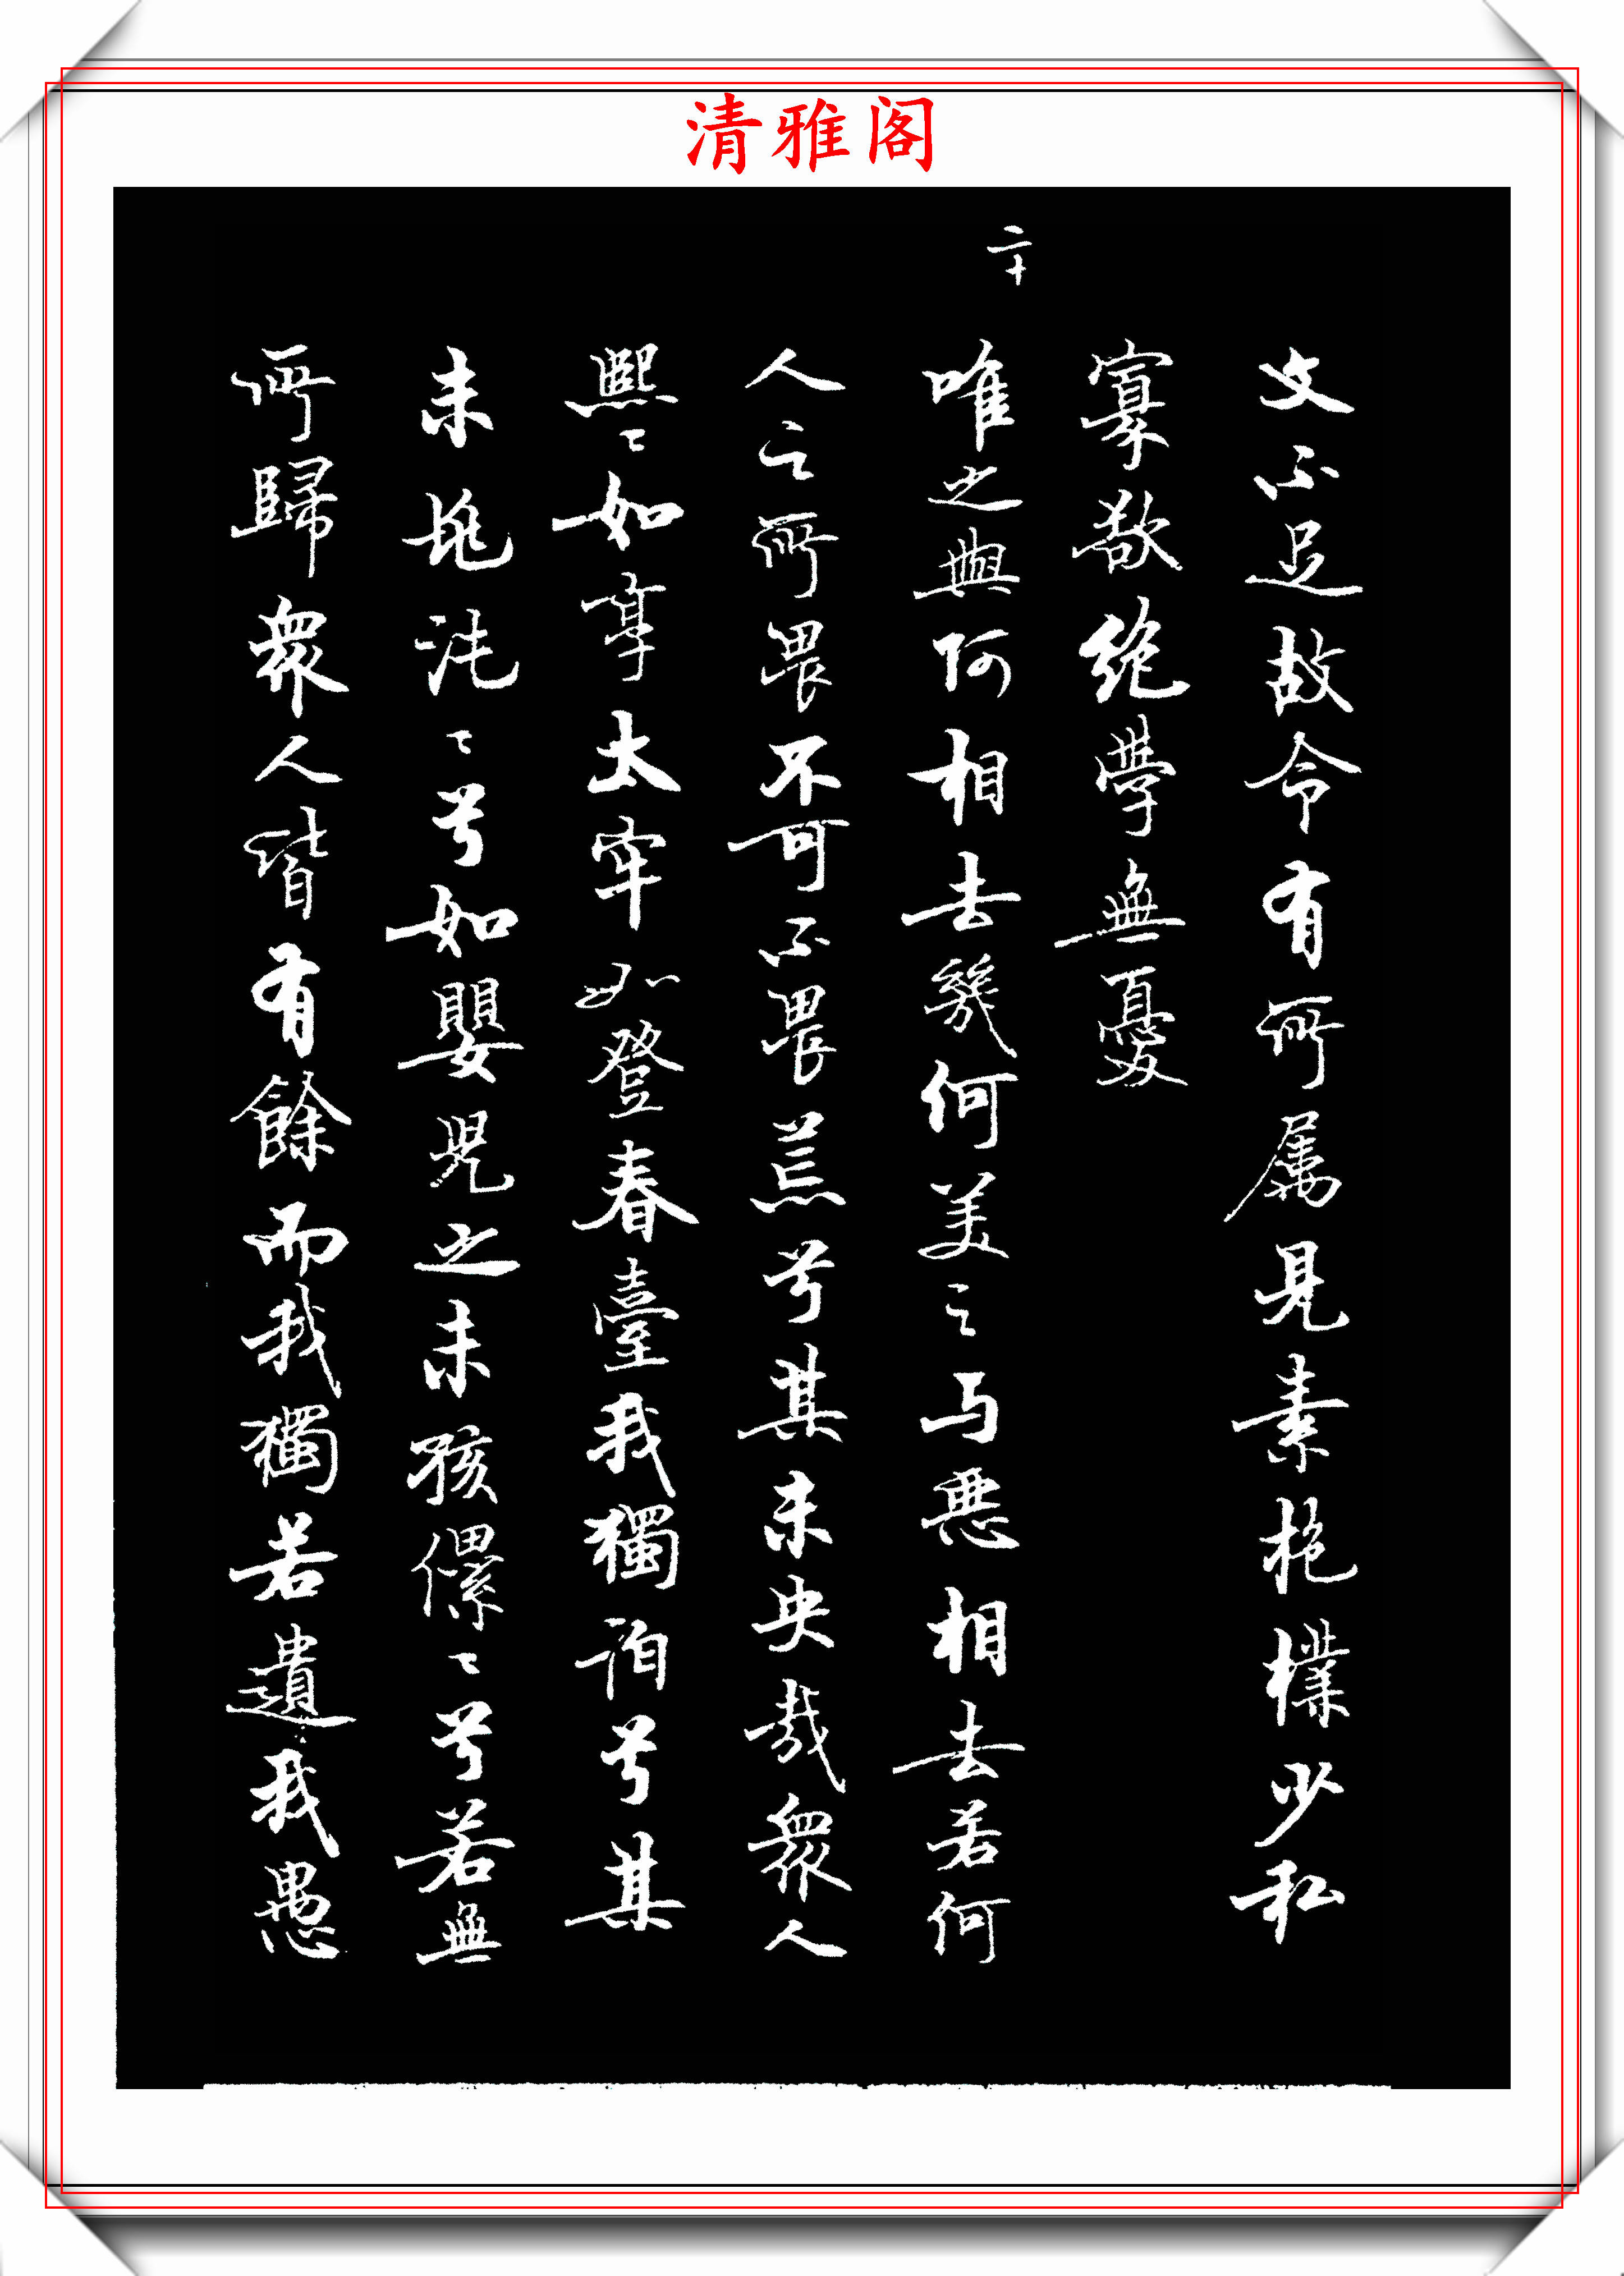 清雅阁
文不足故令有所属見素抱樸少私
寡欲绝學無憂
二十
唯之與阿相去幾何美之与惡相去若何
人之所畏不可不畏荒兮其未央哉衆人
熙〻如享太牢如登春臺我獨泊兮其
未兆沌〻兮如嬰兒之未孩儽〻兮若無
所歸衆人皆有餘而我獨若遺我愚